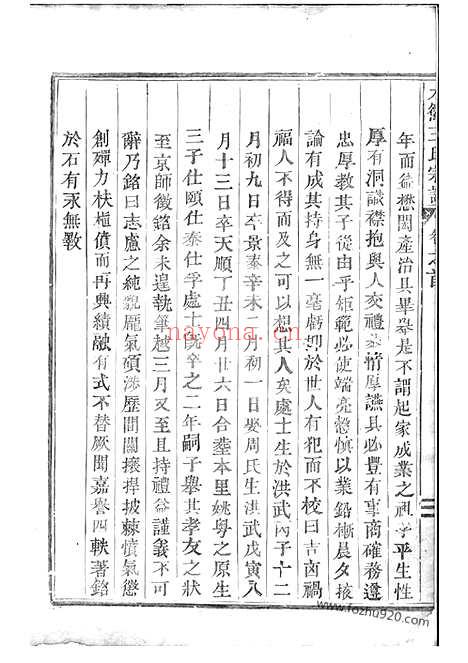 王氏宗譜 卷之首
年而益懋閎產治具畢舉是不謂起家成業之祖乎平生性
厚有洞識襟抱與人交禮恭情厚讌具必豐有事商確務遵
忠厚教其子從由乎矩範必使端亮慤慎以業鉛槧晨夕接
論有成其持身無一毫戲即於世人有犯而不校曰吉凶禍
福人不得而及之可以想其人矣處士生於洪武丙子十二
月初九日卒景泰辛未二月初一日娶周氏生洪武戊寅八
月十三日卒天順丁丑四月廿六日合塟本里姚嶴之原生
三子仕頤仕泰仕孚處士既卒之二年嗣子舉其孝友之狀
至京師徵銘余未遑執筆越三月又至且持禮益謹義不可
辭乃銘曰志慮之純貌厖氣碩涉歷間關攘捍披棘憤氣懲
創殫力扶植僨而再興績融有式不替厥聞嘉譽四軼著銘
於石有永無斁
nayona.cn
www.fozhu920.com